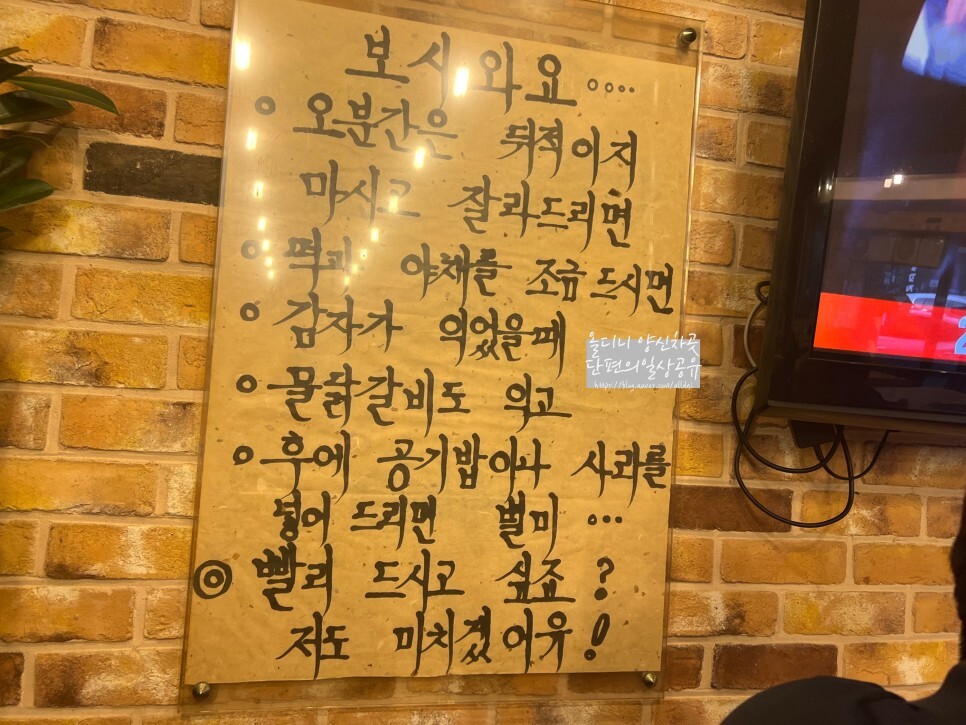 보시와요....
오분간은 뒤적이지
마시고 잘라드리면
떡과 야채를 조금 드시면
감자가 익었을때
물닭갈비도 익고
후에 공기밥이나 사리를
넣어 드리면 별미...
◎ 빨리 드시고 싶죠?
저도 미치겠어유!
올디니 양신차곳
단편의일상공유